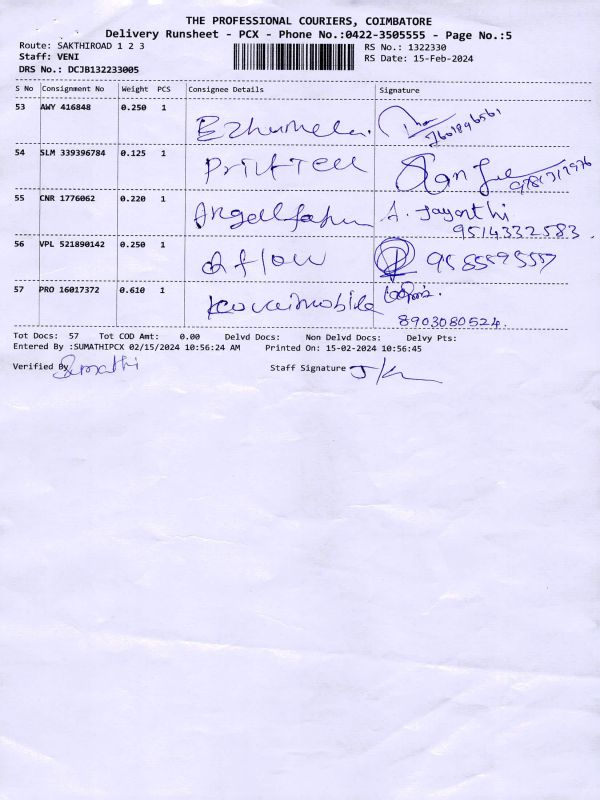 THE PROFESSIONAL COURIERS, COIMBATORE
Delivery Runsheet - PCX - Phone No.:0422-3505555 - Page No.:5
Route: SAKTHIROAD 1 2 3 RS No.: 1322330
Staff: VENI RS Date: 15-Feb-2024
DRS No.: DCJB132233005
S No Consignment No Weight PCS Consignee Details Signature
53 AWY 416848 0.250 1
54 SLM 339396784 0.125 1 Printtech
55 CNR 1776062 0.220 1 A. Jayanthi
9514332583
56 VPL 521890142 0.250 1 Qflow
57 PRO 16017372 0.610 1
8903080524
Tot Docs: 57 Tot COD Amt: 0.00 Delvd Docs: Non Delvd Docs: Delvy Pts:
Entered By :SUMATHIPCX 02/15/2024 10:56:24 AM Printed On: 15-02-2024 10:56:45
Verified By Sumathi Staff Signature